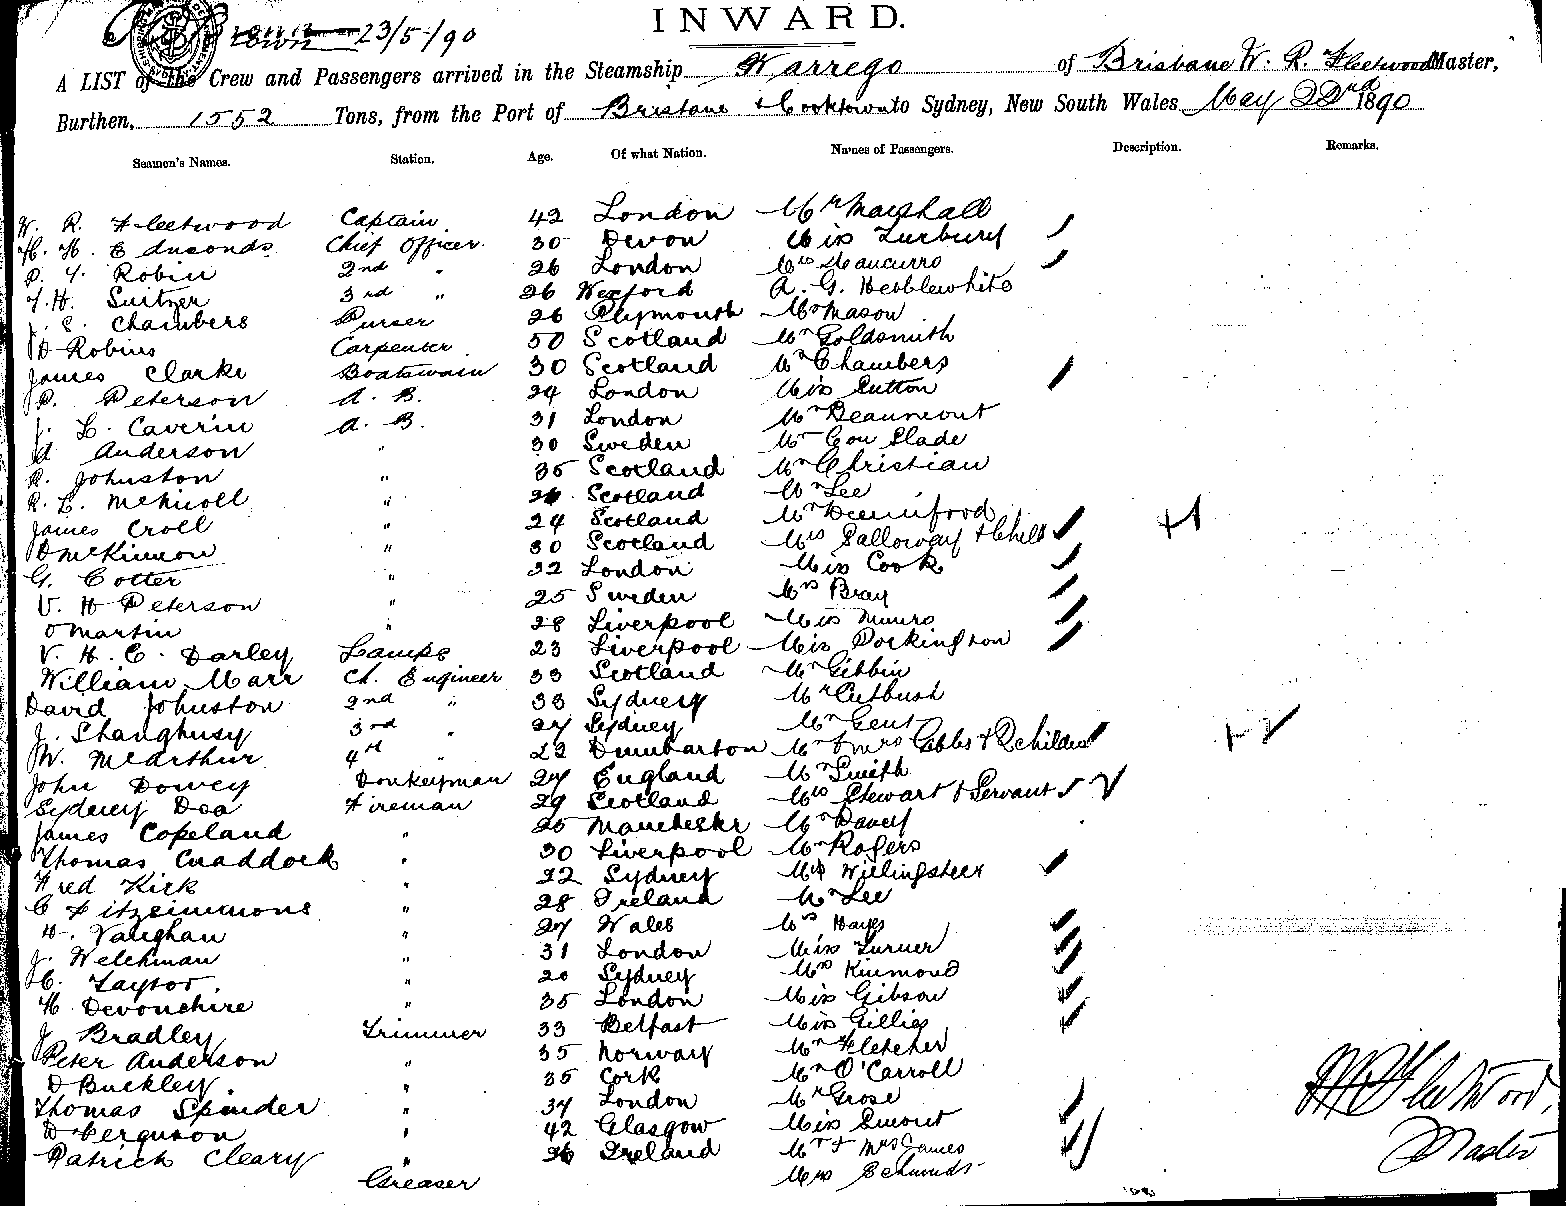 23/5/90
INWARD.
A LIST of the Crew and Passengers arrived in the Steamship Warrego of Brisbane W. R. Fleetwood Master,
Burthen, 1552 Tons, from the Port of Brisbane & Cooktown to Sydney, New South Wales May 22nd 1890
Seamen's Names. Station. Age. Of what Nation. Names of Passengers. Description. Remarks.
W. R. Fleetwood Captain 42 London Mr Marshall
H. H. Edmonds Chief Officer 30 Devon Miss Turbury
Robin 2nd " 26 London Mrs
T. H. Suitner 3rd " 26 Wexford A. G. Hebblewhite
J. E. Chambers Purser 26 Plymouth Mr Mason
D Robins Carpenter 50 Scotland Mr Goldsmith
James Clarke Boatswain 30 Scotland Mr Chambers
P. Peterson A. B. 24 London Miss Sutton
J. L. Caverin A. B. 31 London Mr Beaumont
A Anderson " 30 Sweden Mr Con Slade
R. Johnston " 35 Scotland Mr Christian
R. L. McNicoll " 26 Scotland Mr Lee
James Croll " 24 Scotland Mr Durnford
D McKinnon " 30 Scotland Mrs Galloway & Child +1
G. Cotter " 22 London Miss Cook
V. H Peterson " 25 Sweden Mrs Bray
O Martin " 28 Liverpool Miss Munro
V. H. C. Darley Lamps 23 Liverpool Miss Dockington
William Marr Ch. Engineer 33 Scotland Mr Gibbin
David Johnston 2nd " 33 Sydney Mr Cutbush
J. Shanghusy 3rd " 27 Sydney Mr Gent
W. McArthur 4th " 23 Dumbarton Mr & Mrs Cobbs & 2 children +2
John Dowey Donkeyman 27 England Mr Smith
Sydney Dea Fireman 29 Scotland Mrs Stewart & Servant
James Copeland " 25 Manchester Mr Davey
Thomas Craddock " 30 Liverpool Mr Rogers
Fred Kirk " 22 Sydney Mrs
C Fitzsimmons " 28 Ireland Mr Lee
H. Vaughan " 27 Wales Mrs Hayes
J. Welchman " 31 London Miss Turner
C. Taylor. " 20 Sydney Mrs Kinmond
H. Devonshire " 35 London Miss Gibson
J Bradley Trimmer 33 Belfast Miss Gillies
Peter Anderson " 35 Norway Mr Fletcher
D Buckley. " 35 Cork Mr O'Carroll
Thomas Spinder " 37 London Mr Grose
D Ferguson " 42 Glasgow Miss Smout
Patrick Cleary " 26 Ireland Mr & Mrs James
Greaser Mrs Edmunds
W R Fleetwood,
Master